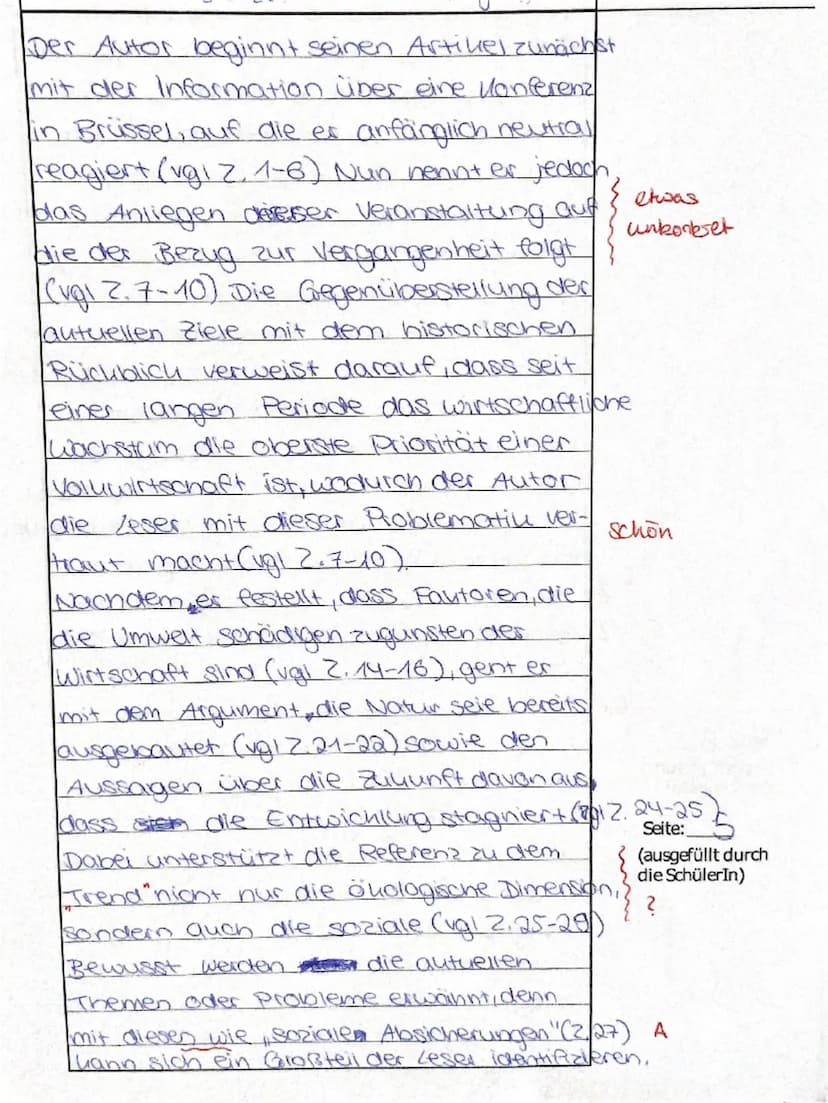 Der Autor beginnt seinen Artikel zunächst
mit der Information über eine Konferenz
in Brüssel, auf die er anfänglich neutral
reagiert (vgl Z. 1-6) Nun nennt er jedoch
das Anliegen dieser Veranstaltung auf
etwas
unkonkret
die der Bezug zur Vergangenheit folgt
(vgl Z. 7-10) Die Gegenüberstellung der
aktuellen Ziele mit dem historischen
Rückblick verweist darauf, dass seit
einer langen Periode das wirtschaftliche
Wachstum die oberste Priorität einer
Volkwirtschaft ist, wodurch der Autor
die Leser mit dieser Problematik ver-
schön
traut macht (vgl Z. 7-10).
Nachdem er festellt, dass Faktoren, die
die Umwelt schädigen zugunsten der
Wirtschaft sind (vgl Z. 14-16), geht er
mit dem Argument, die Natur seie bereits
ausgebeutet (vgl Z. 21-22) sowie den
Aussagen über die Zukunft davon aus,
dass die Entwicklung stagniert (vgl Z. 24-25)
Seite: 5
(ausgefüllt durch
die SchülerIn)
Dabei unterstützt die Referenz zu dem
„Trend" nicht nur die ökologische Dimension,
?
sondern auch die soziale (vgl Z. 25-28)
Bewusst werden die aktuellen
Themen oder Probleme erwähnt, denn
mit diesen wie „soziale Absicherungen" (Z. 27) A
kann sich ein Großteil der Leser identifizieren.